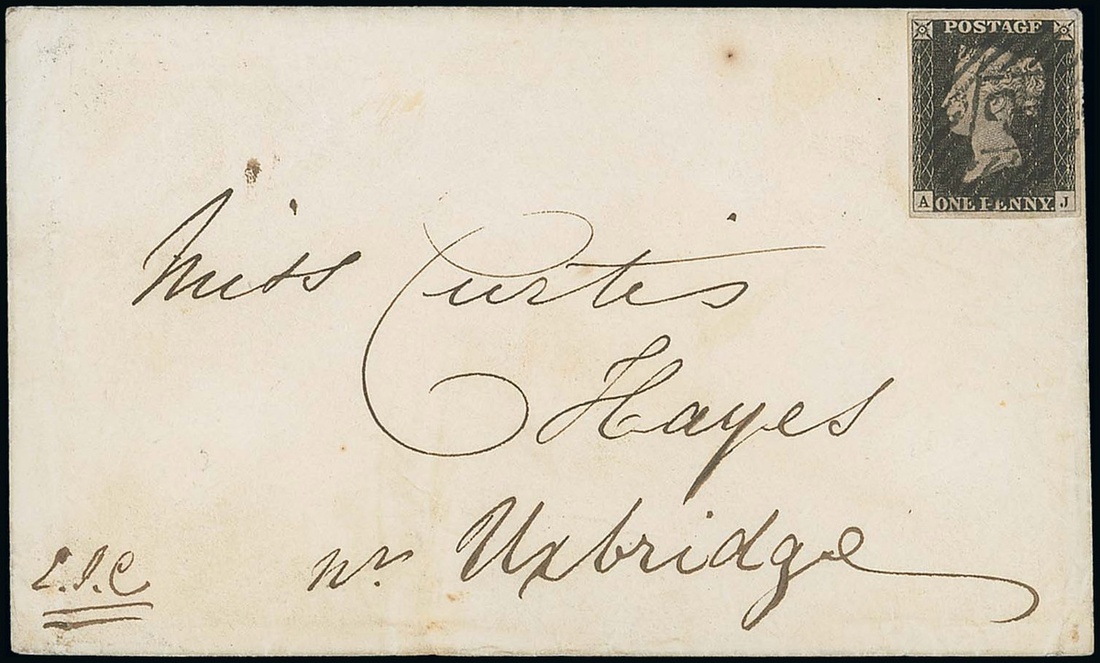 POSTAGE
A ONE PENNY. J
Miss Curtis
Hayes
nr Uxbridge